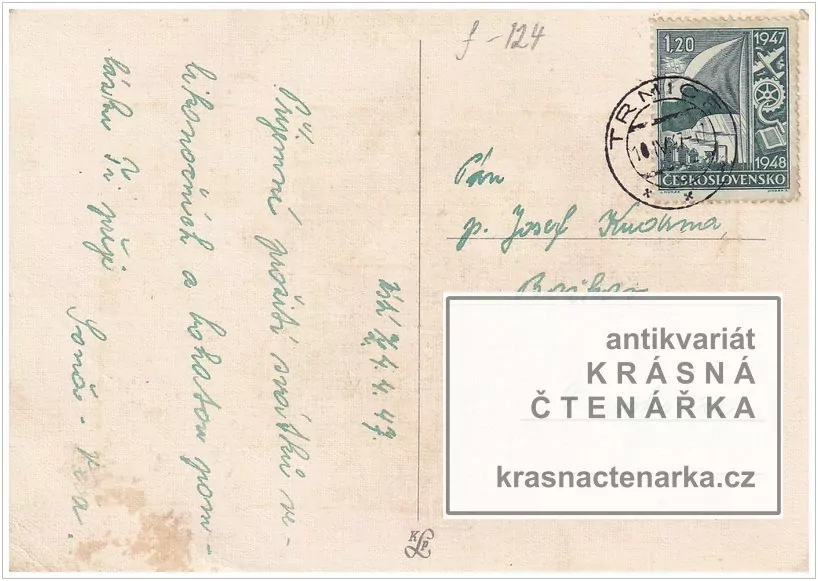 f-124
1,20
1947
1948
ČESKOSLOVENSKO
TRMICE
Pán
p. Josef Kudrna,
Příjemní prožití svátků ve-
likonočních a bohatou pom-
lásku Ti přeje
Soňa -
4.4.47.
KLP
antikvariát
KRÁSNÁ
ČTENÁŘKA
krasnactenarka.cz